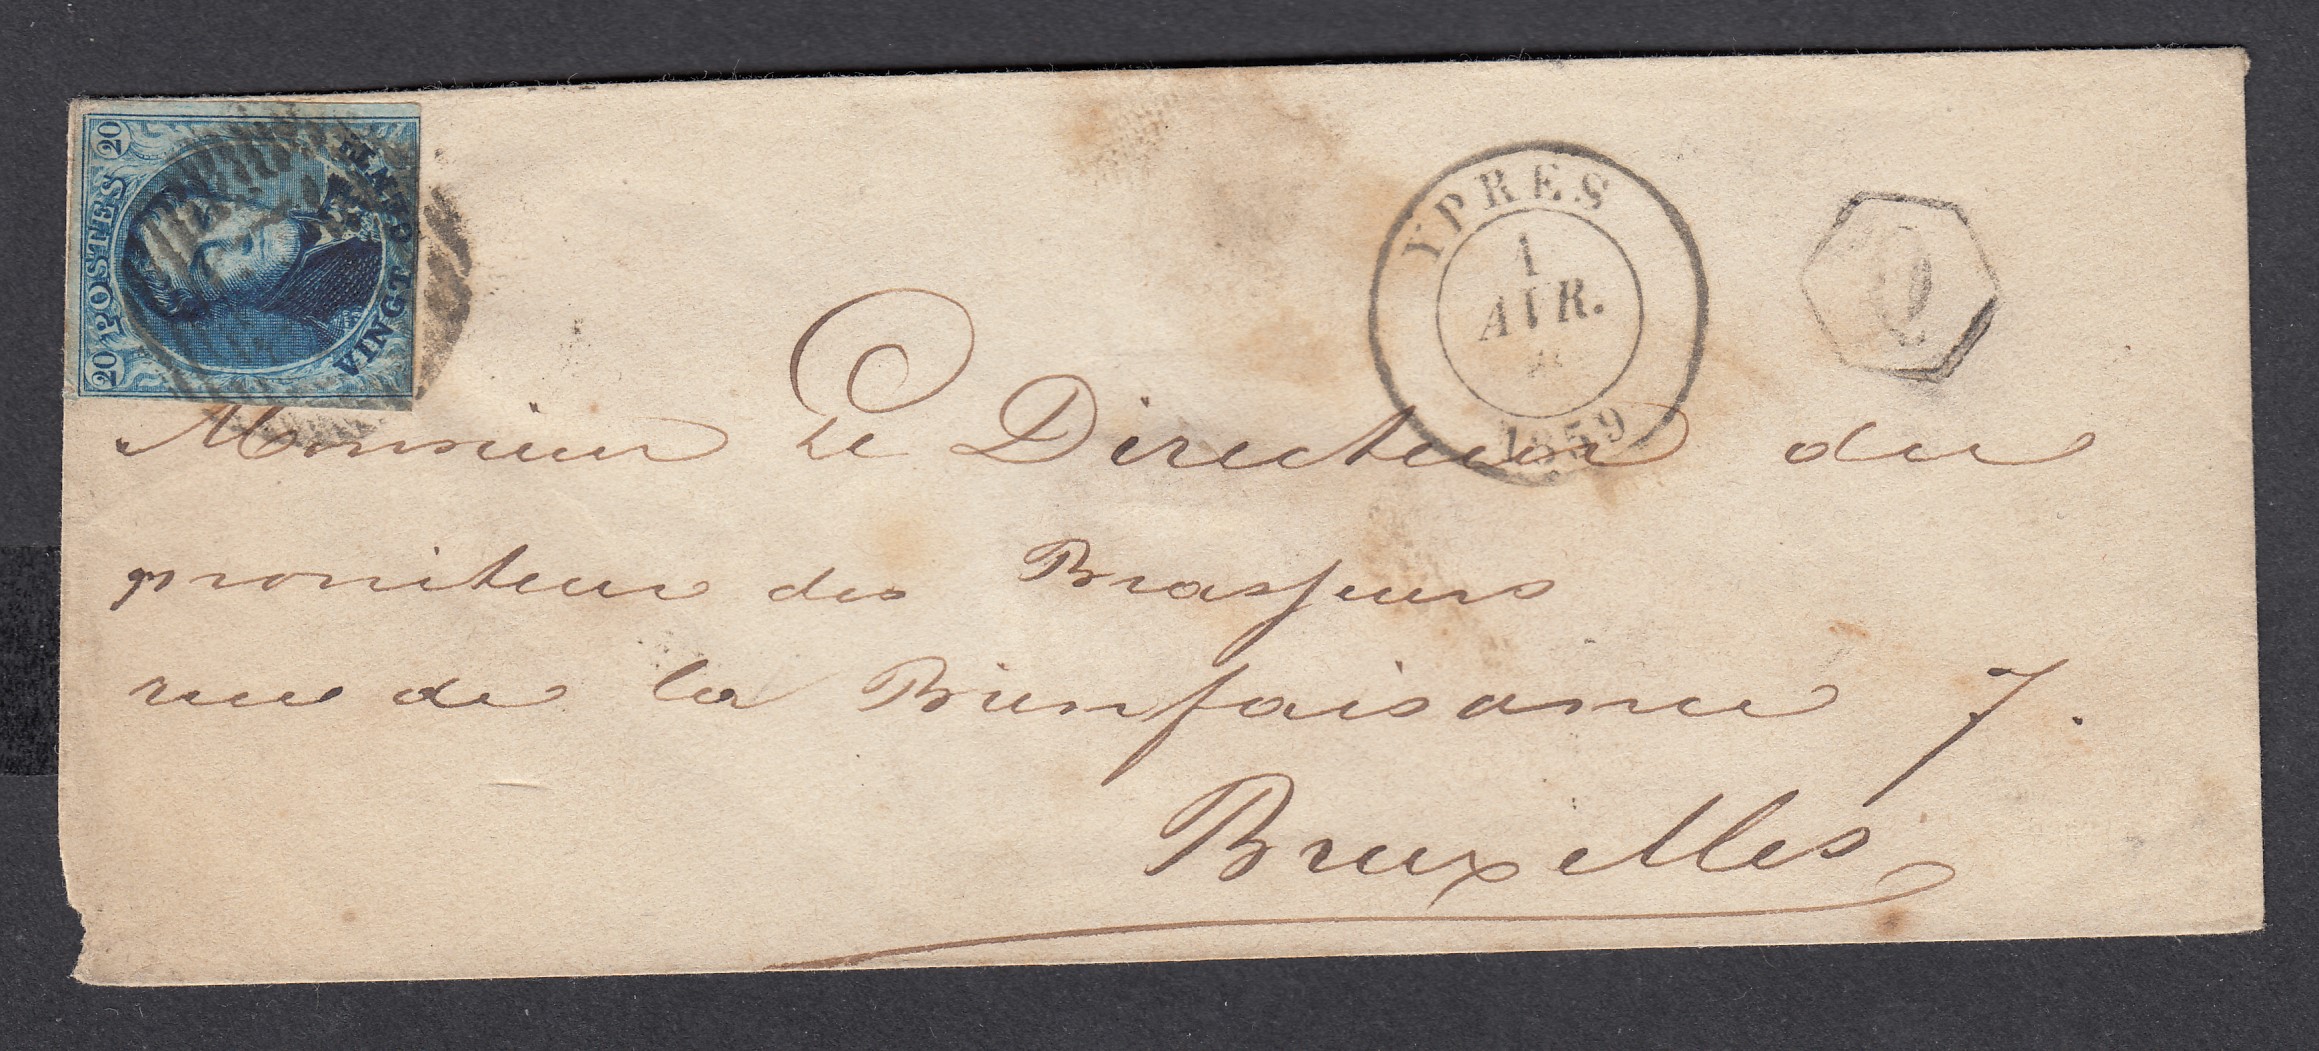 20 POSTES 20
VINGT CENTES
YPRES
1
AVR.
1859
Q
Monsieur le Directeur du
moniteur des Brasseurs
rue de la Bienfaisance 7.
Bruxelles